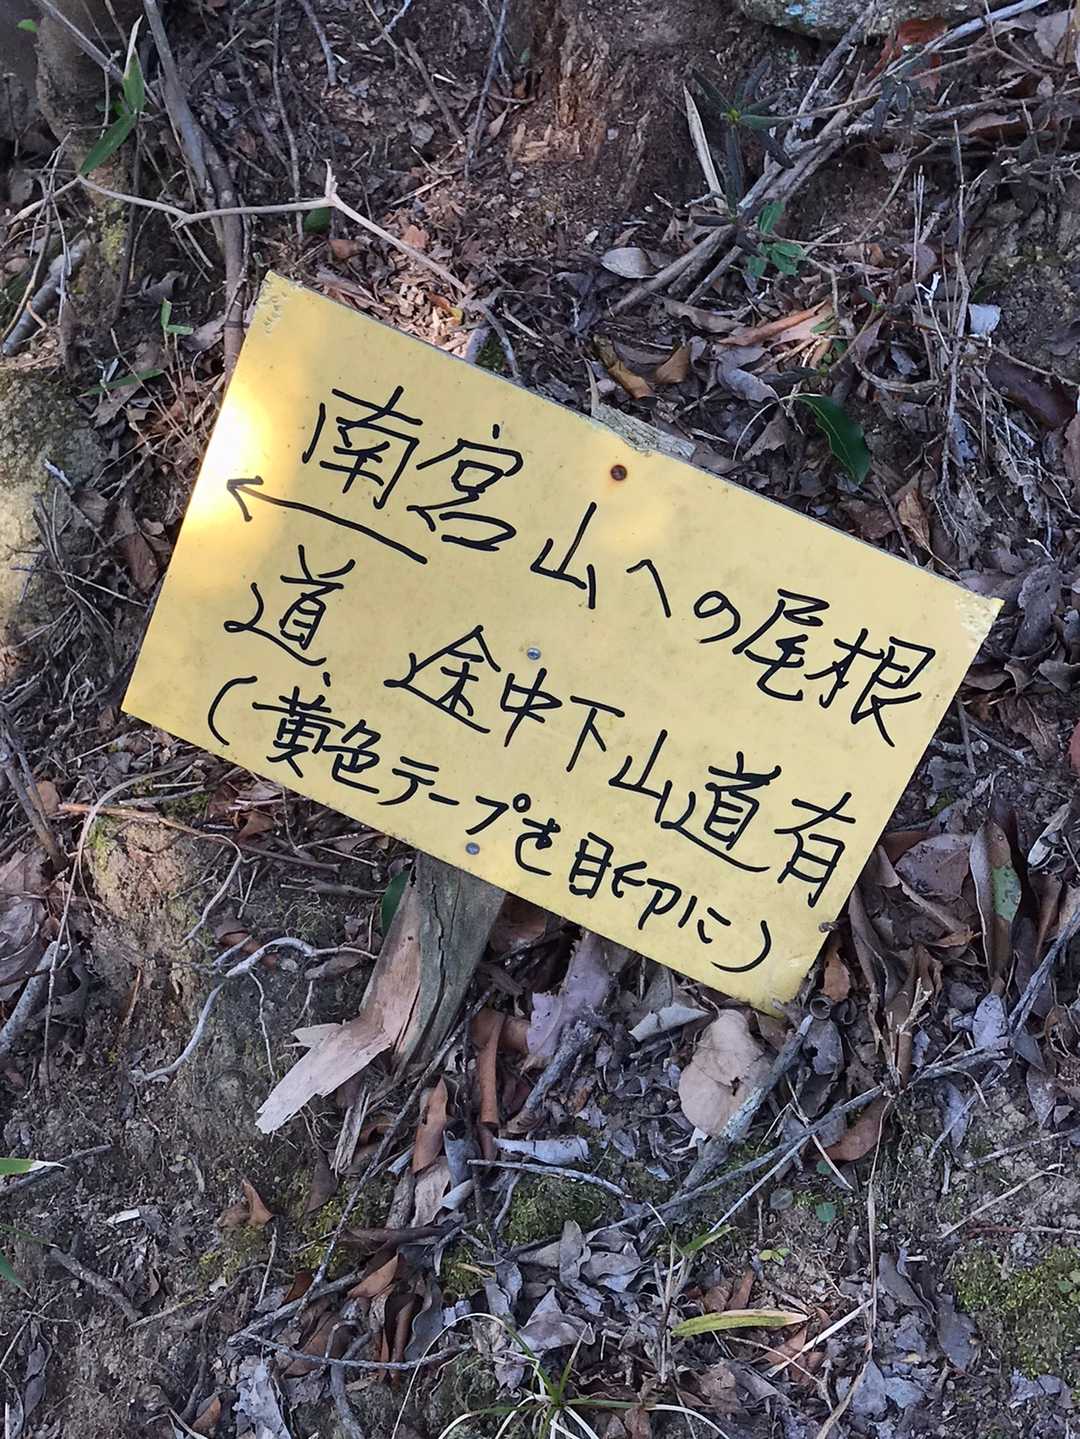 南宮山への尾根
←
道、途中下山道有
(黄色テープを目印に)